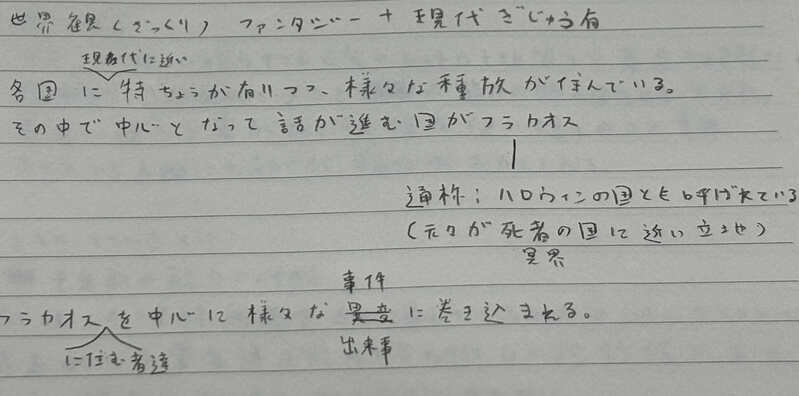 世界観(ざっくり) ファンタジー + 現代ぎじゅつ有
現代に近い
各国に特ちょうが有りつつ、様々な種族が住んでいる。
その中で中心となって話が進む国がフラカオス
通称:ハロウィンの国とも呼ばれている
(元々が死者の国に近い立ち地)
冥界
事件
フラカオスを中心に様々な異変に巻き込まれる。
に住む者達 出来事